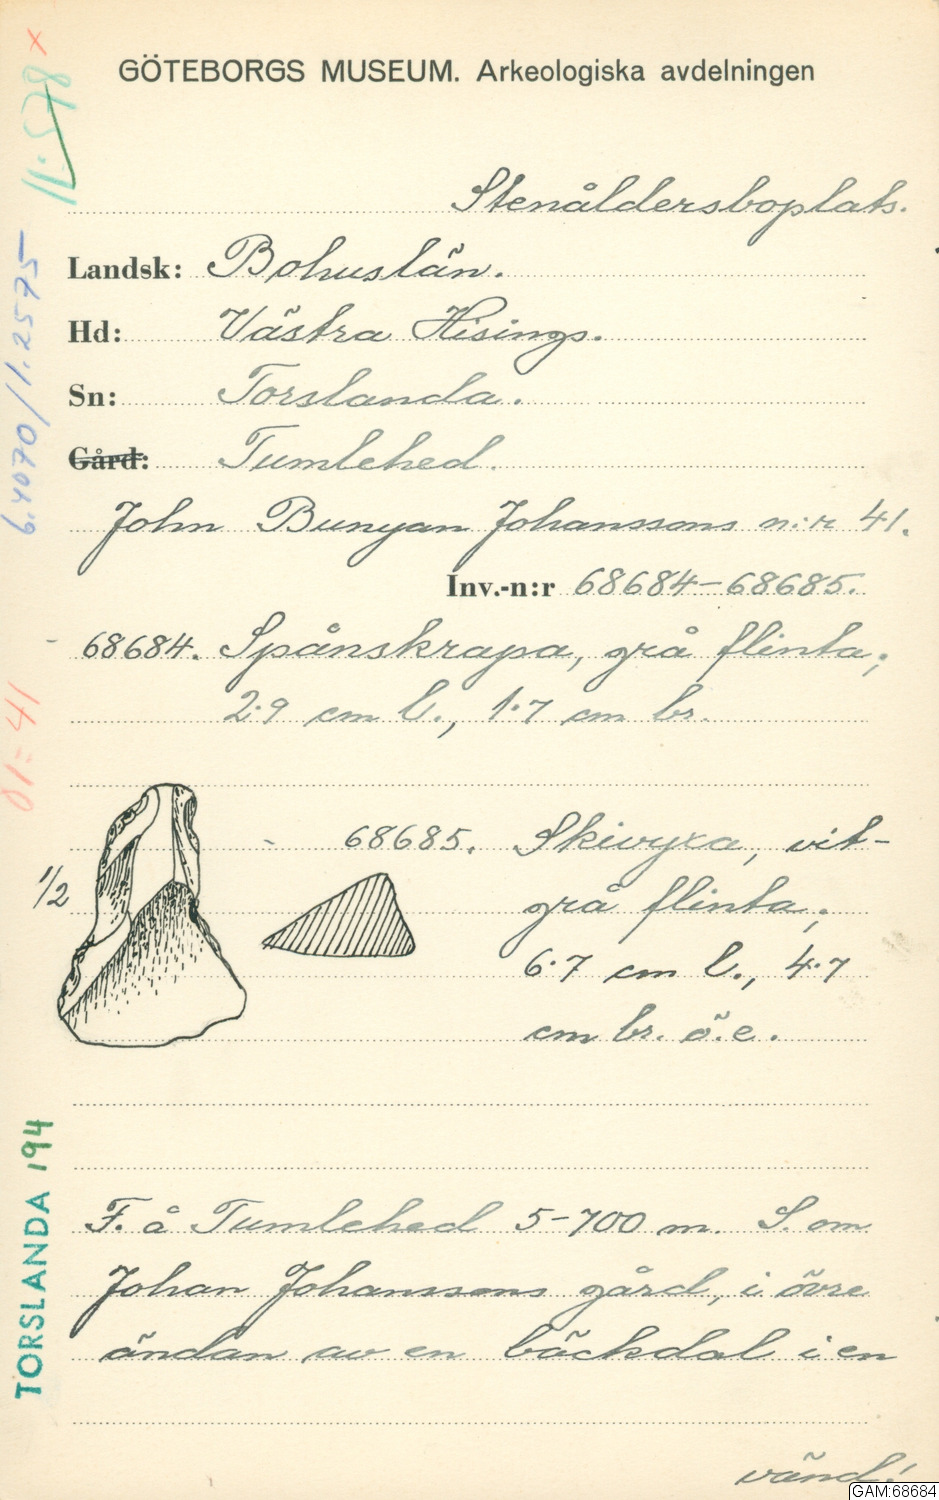 GÖTEBORGS MUSEUM. Arkeologiska avdelningen
11:578 x
Stenåldersboplats.
Landsk: Bohuslän.
Hd: Västra Hisings.
Sn: Torslanda.
Gård: Tumlehed.
John Bunyan Johanssons n:r 41.
Inv.-n:r 68684–68685.
68684. Spånskrapa, grå flinta;
2.9 cm l., 1.7 cm br.
68685. Skivyxa, vit-
1/2
grå flinta;
6.7 cm l., 4.7
cm br. ö.e.
F. å Tumlehed 5-700 m. S. om
Johan Johanssons gård, i övre
ändan av en bäckdal i en
vänd!
6.4070/1.2575
01=41
TORSLANDA 194
GAM:68684